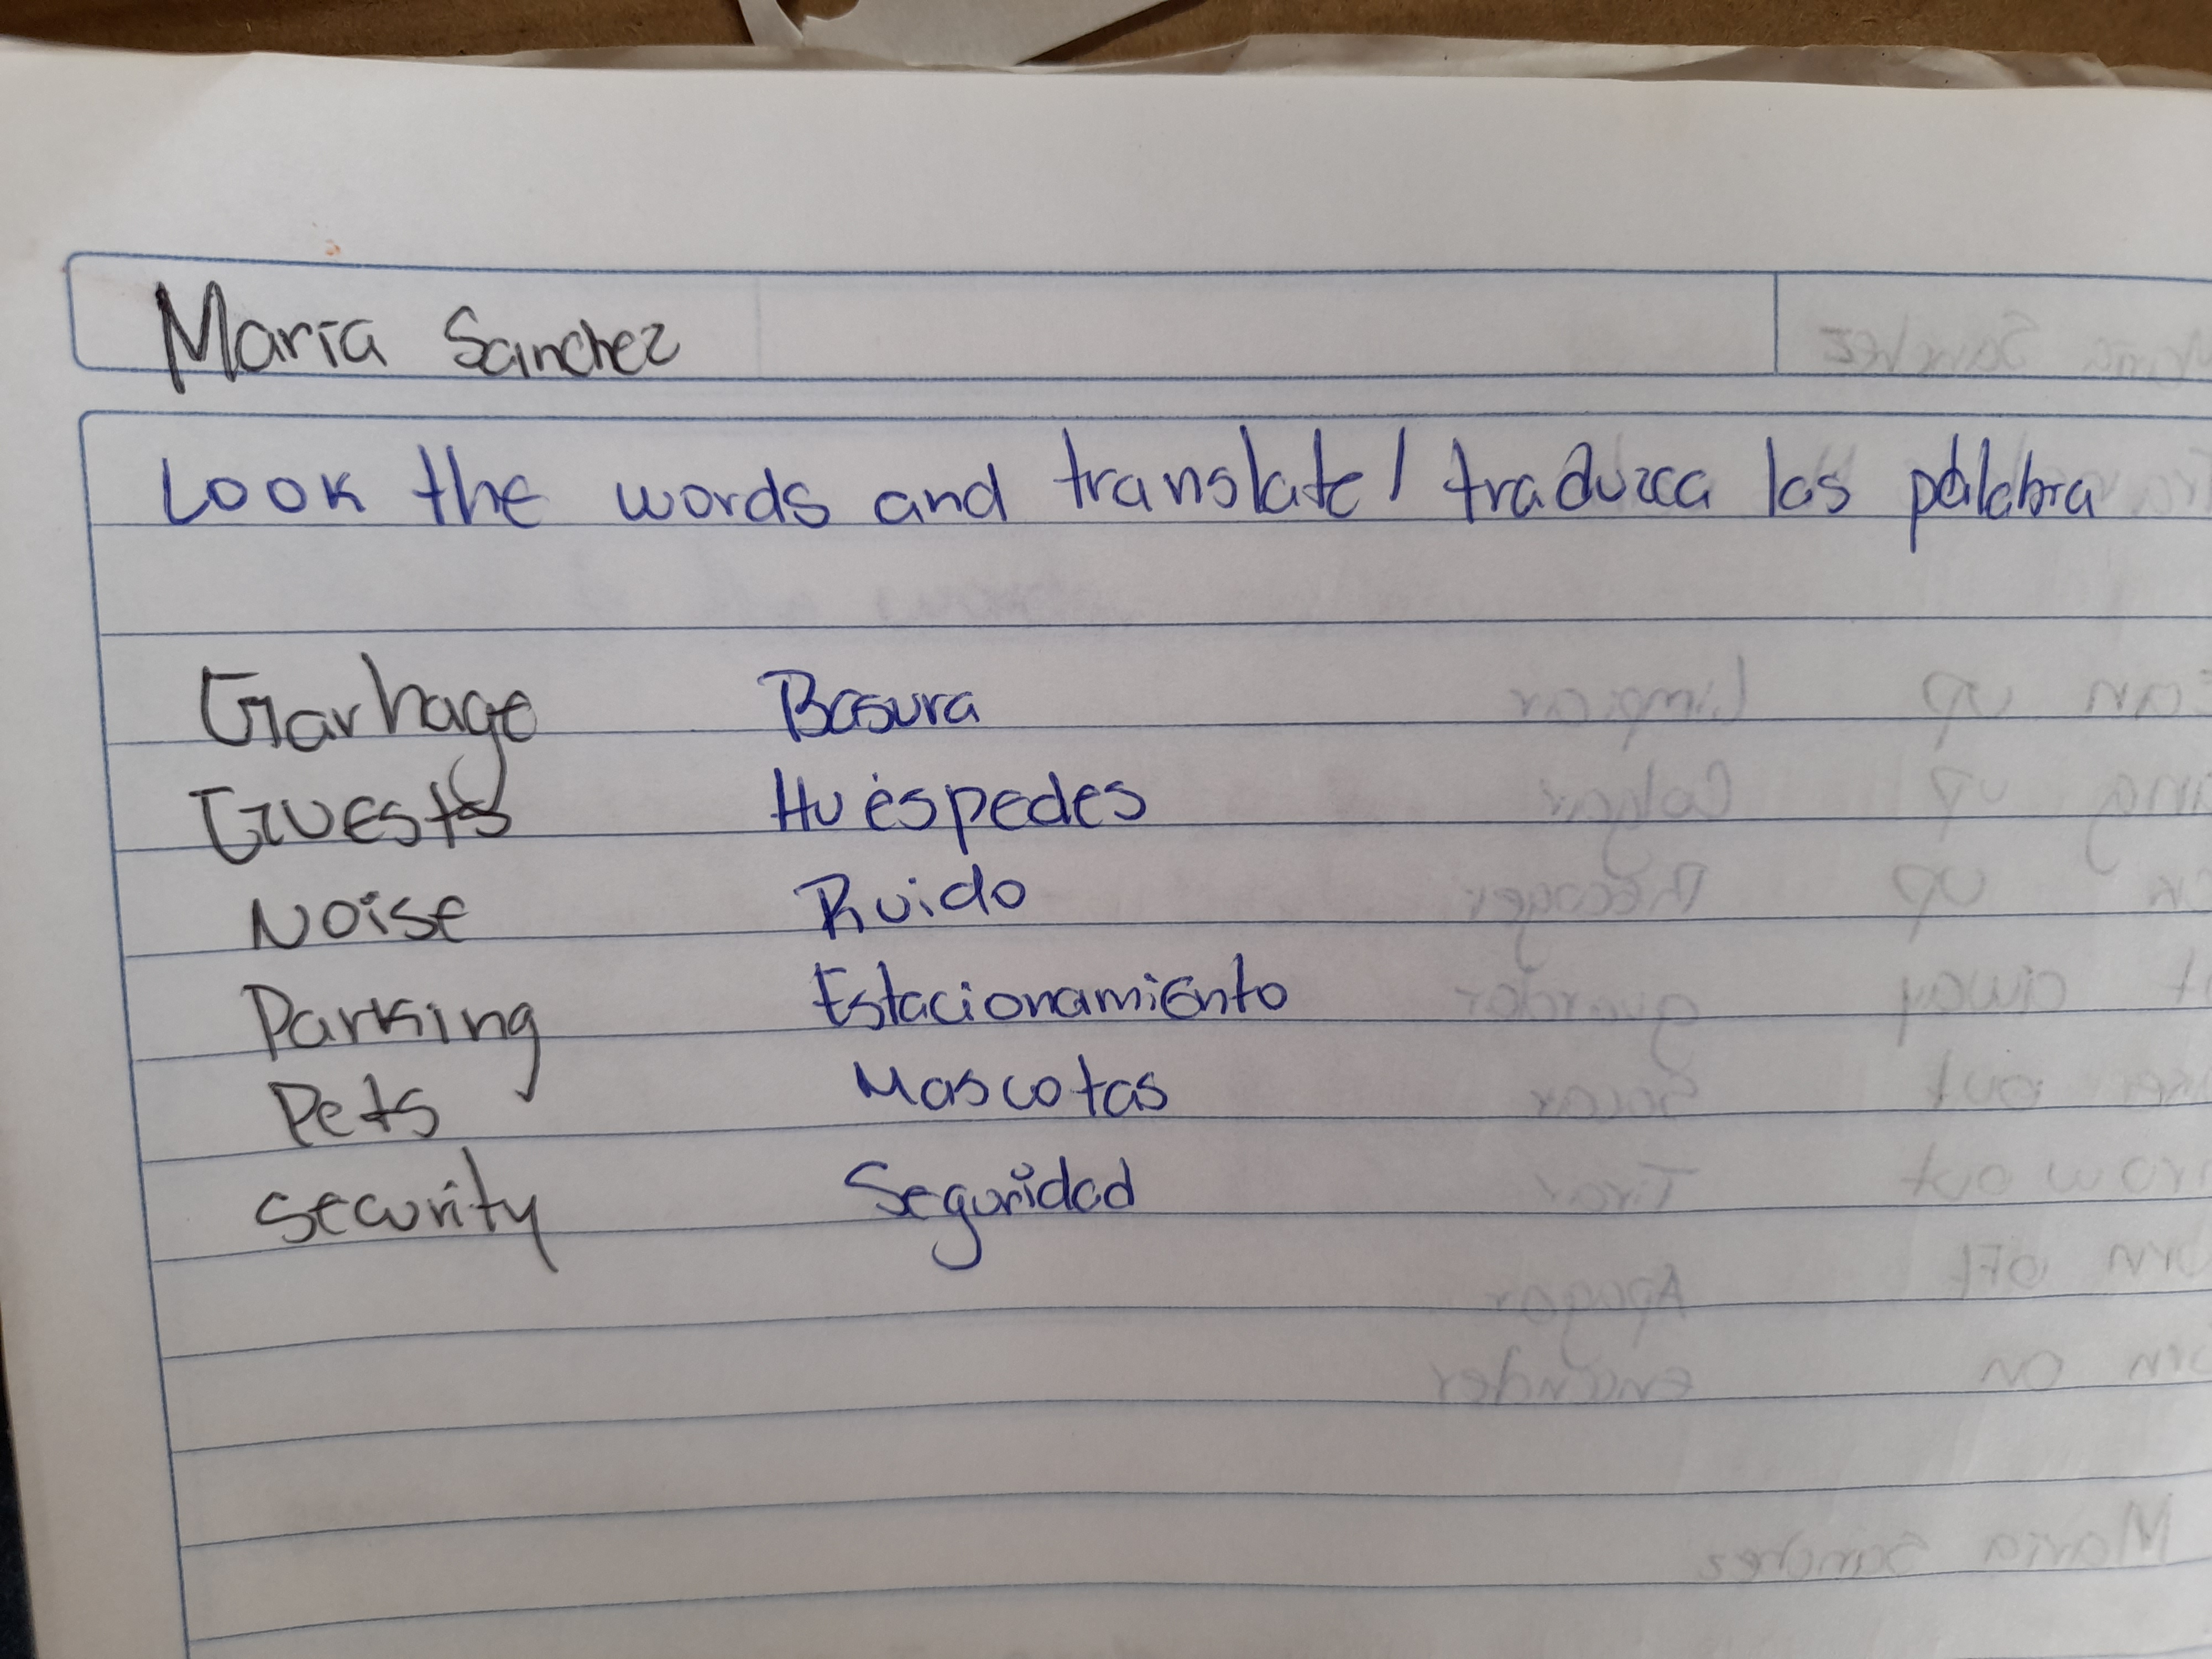 Maria Sanchez
Look the words and translate / traduzca las palabra
Garbage Basura
Guests Huéspedes
Noise Ruido
Parking Estacionamiento
Pets Mascotas
security Seguridad